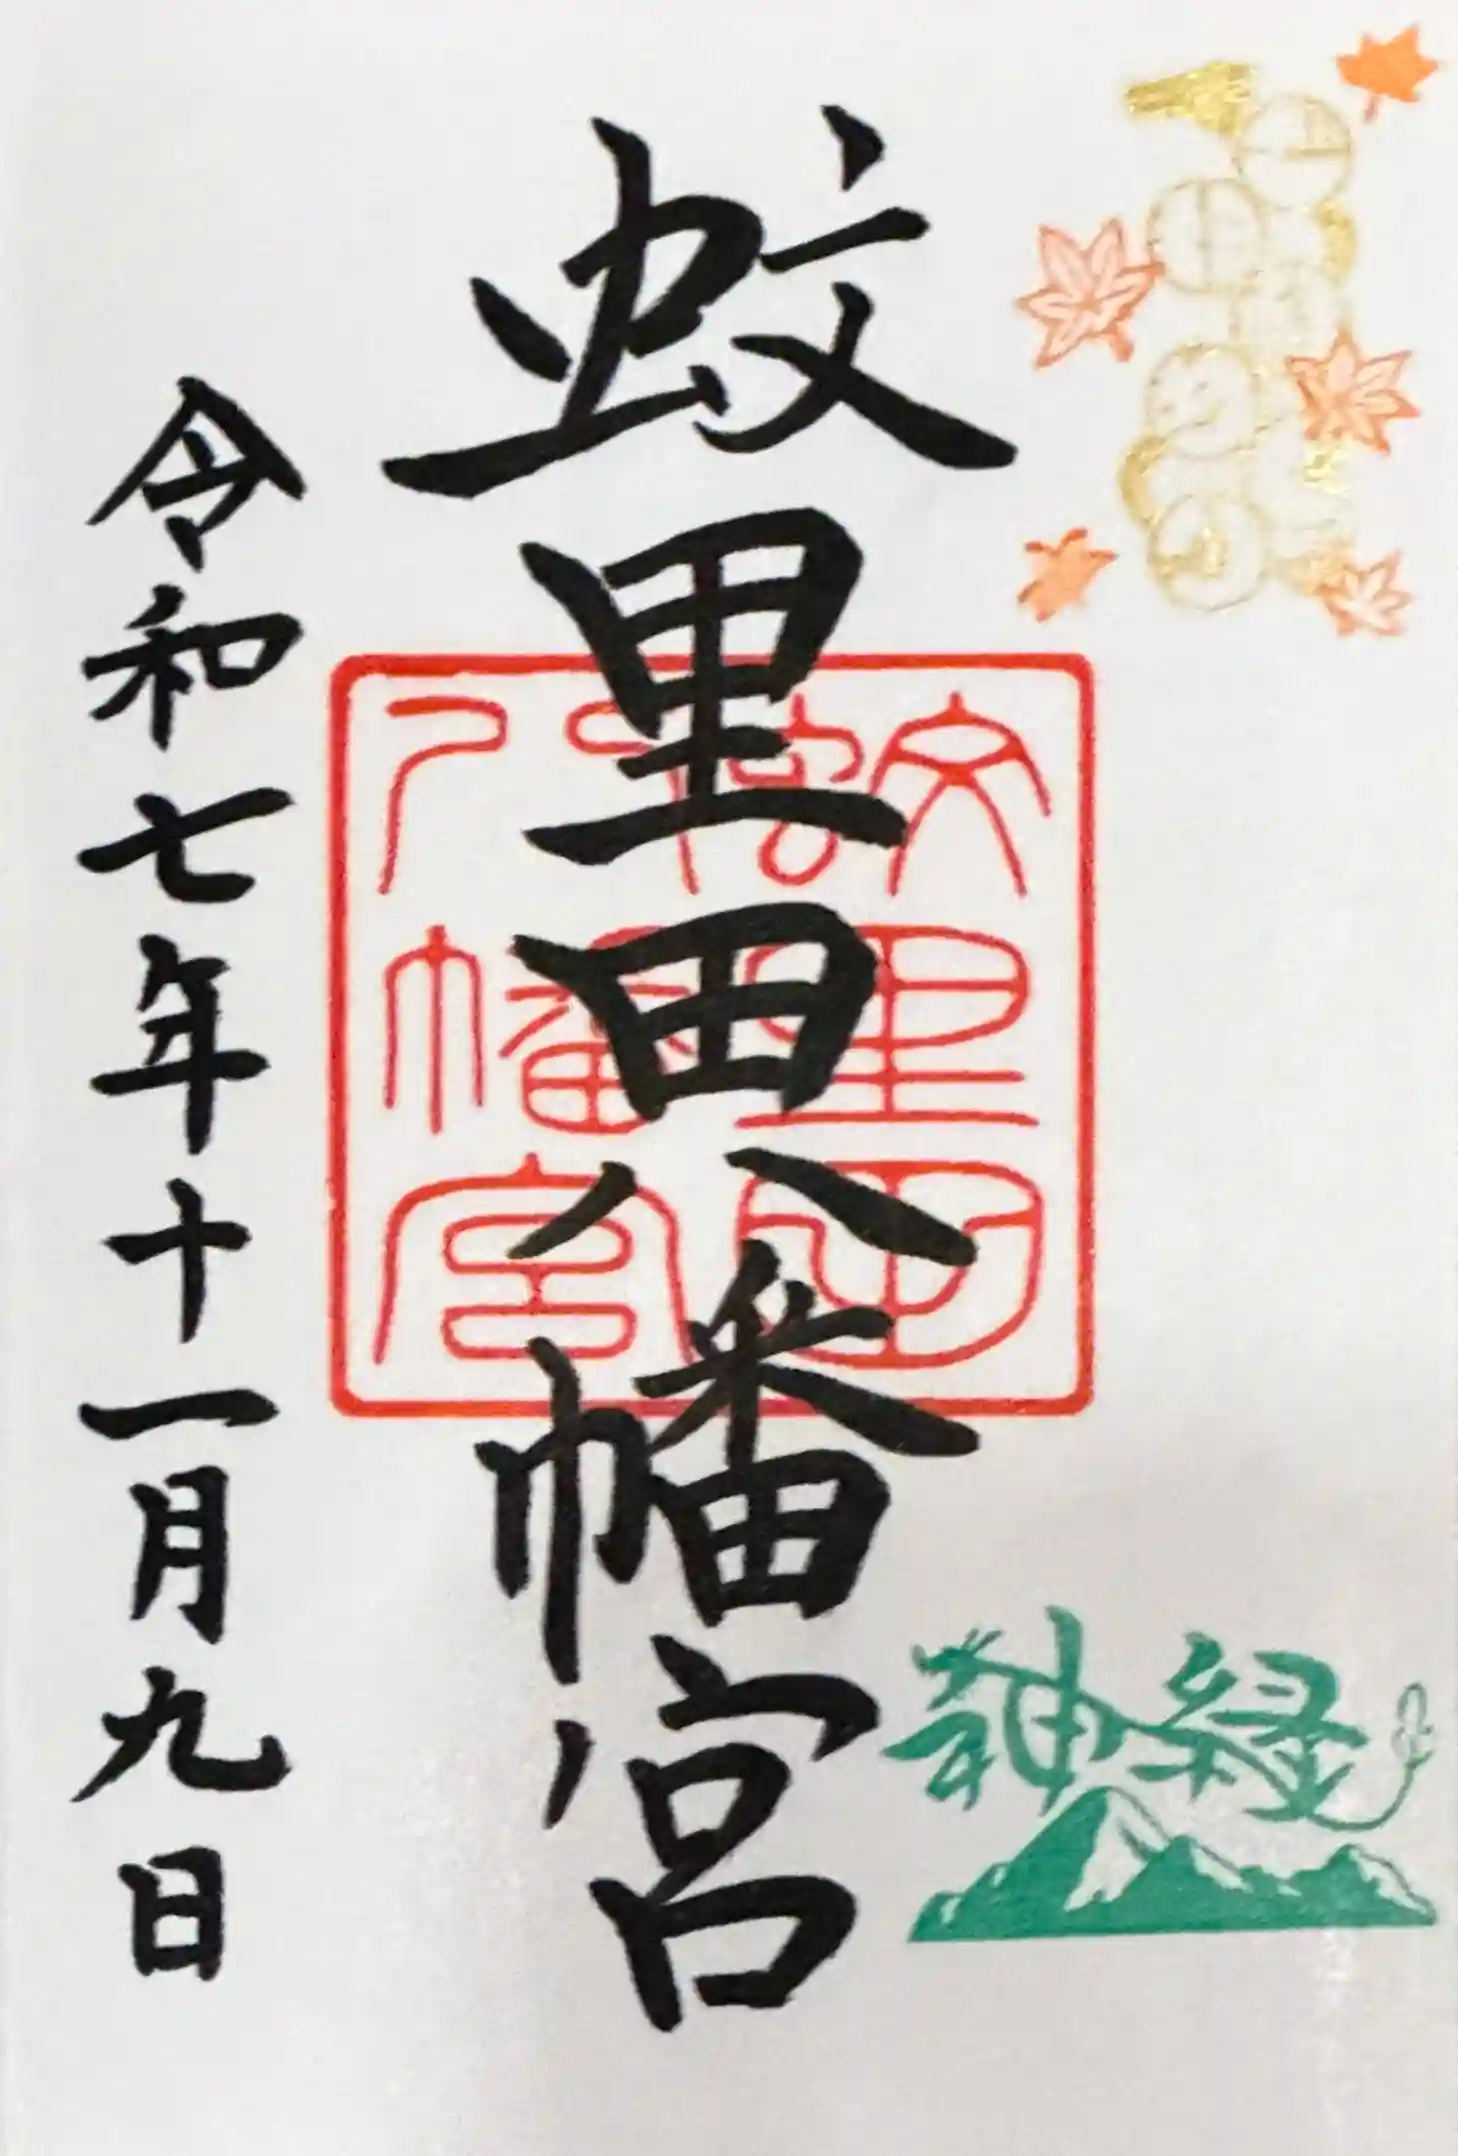 蚊里田八幡宮
蚊里田
八幡宮
神縁
令和七年十一月九日